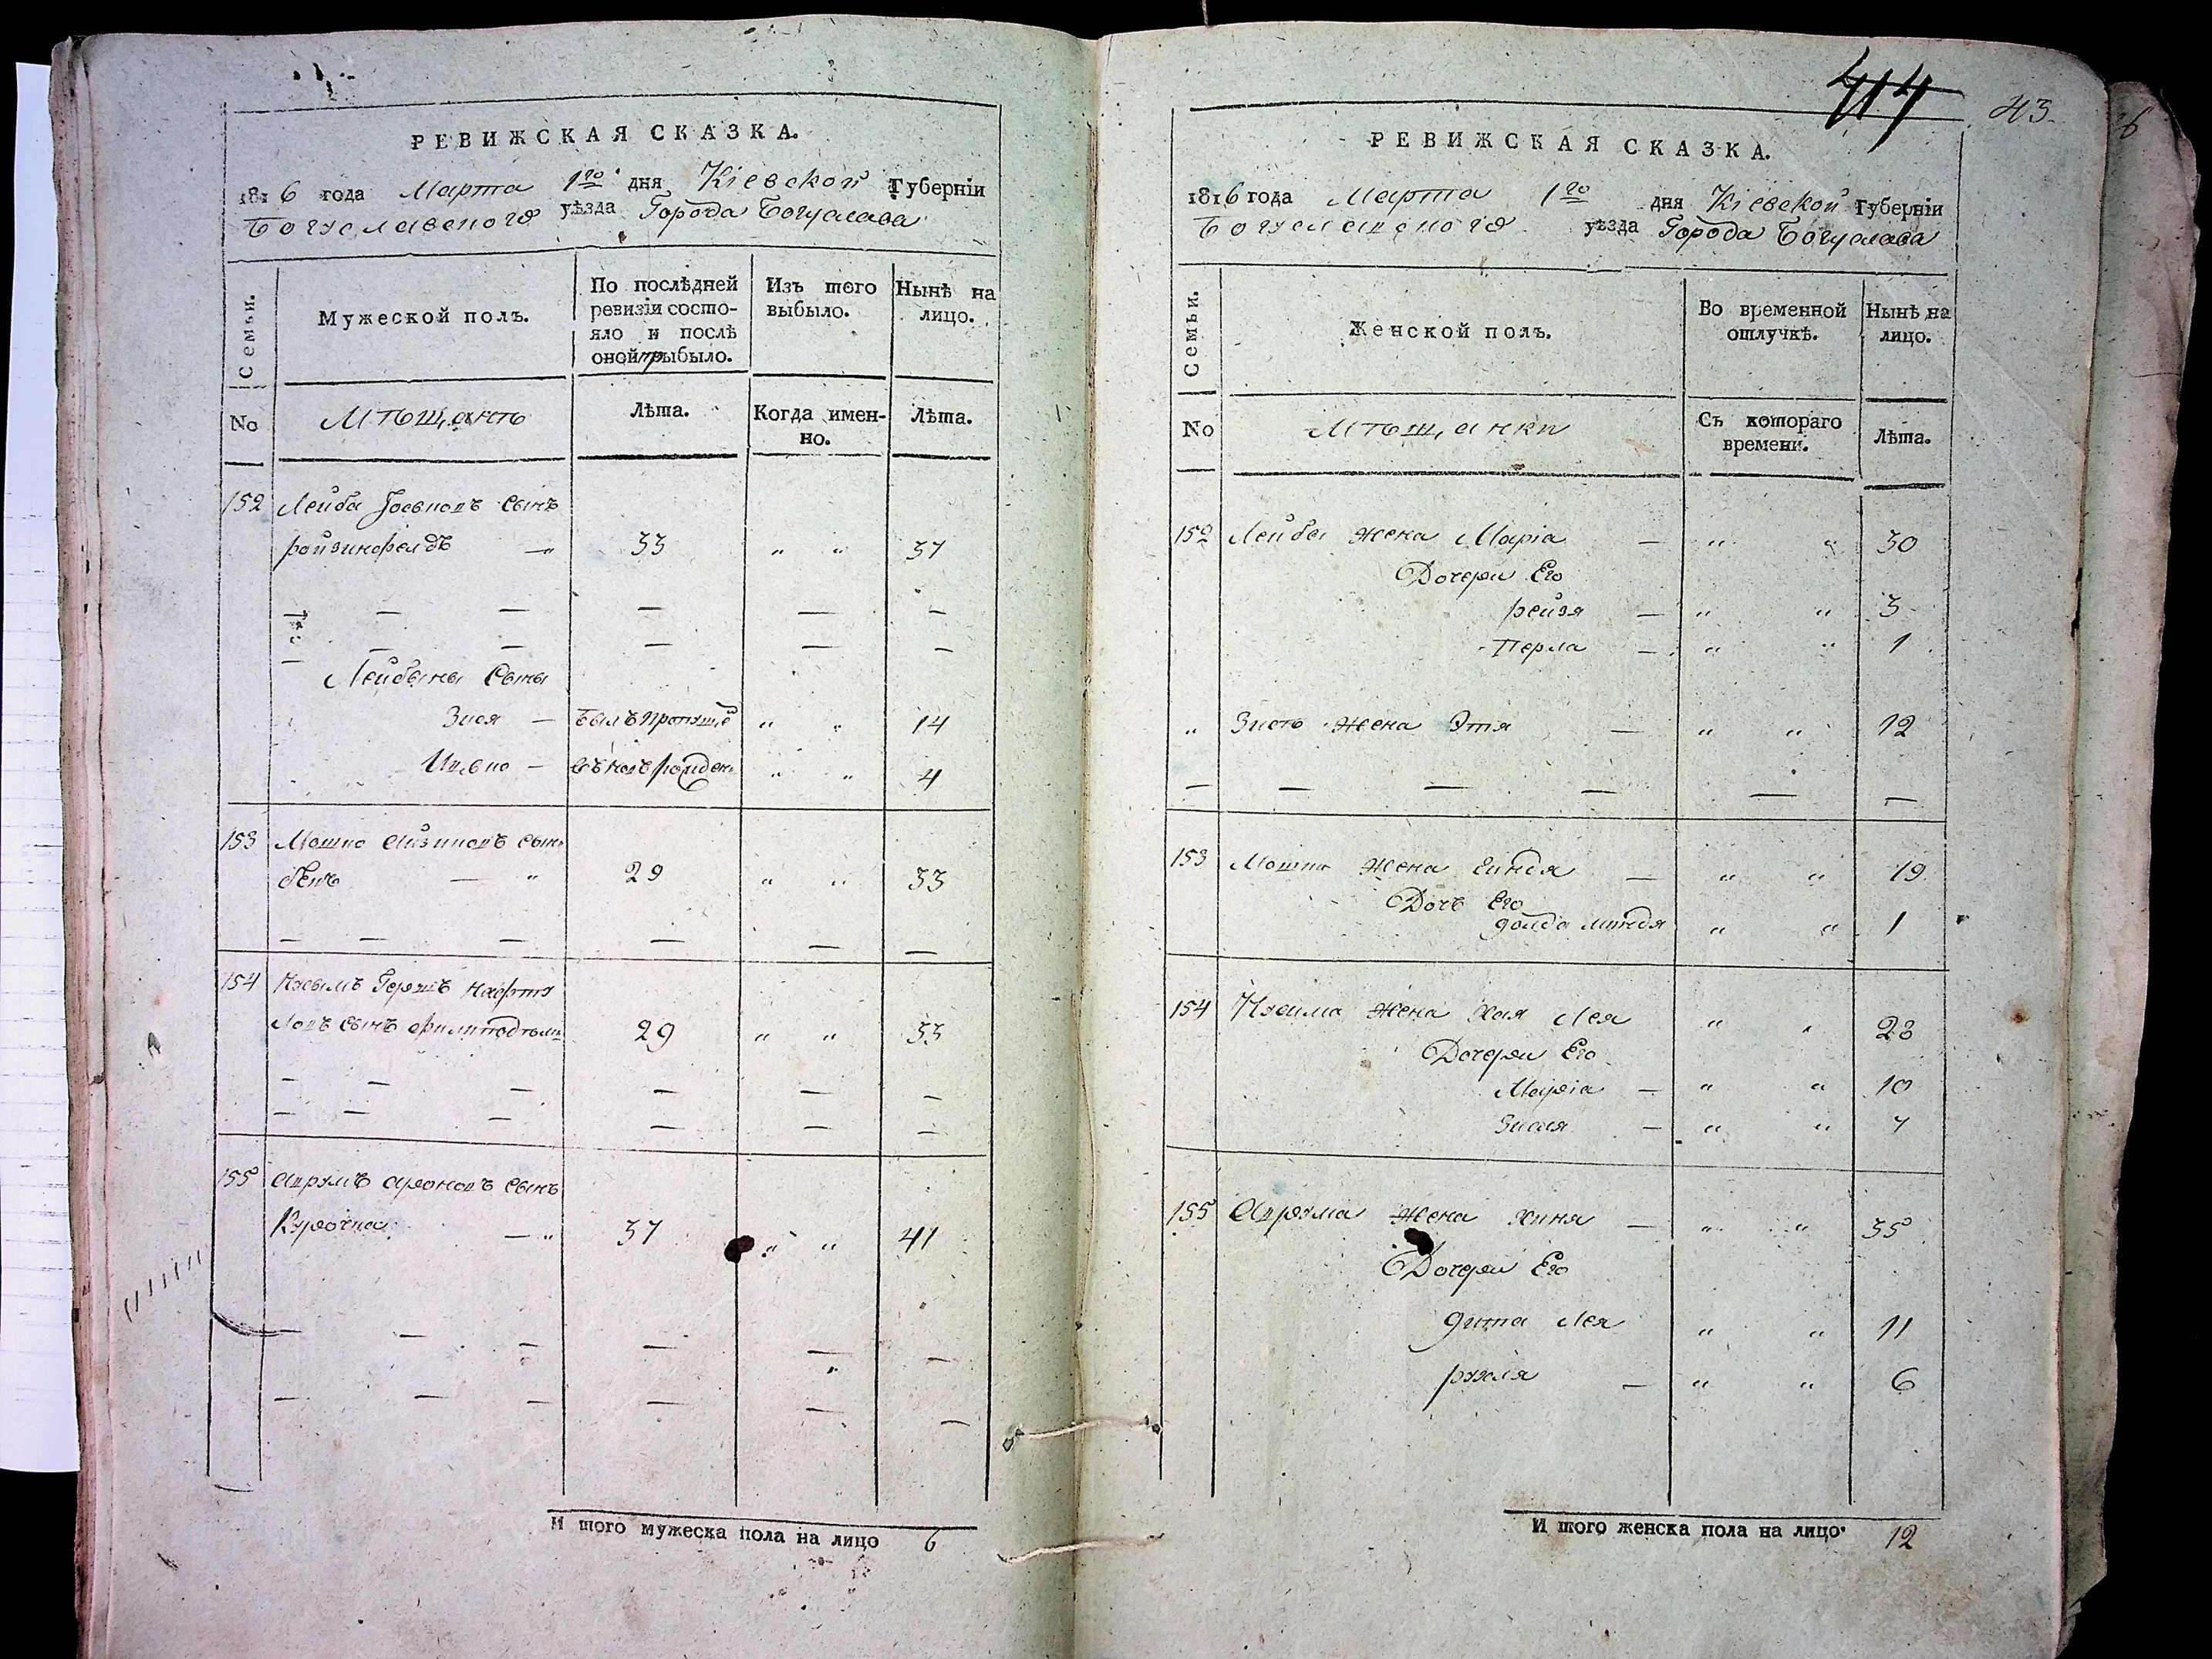 РЕВИЖСКАЯ СКАЗКА.
1816 года Марта 1го дня Кіевской Губерніи
Богуславского уѣзда Города Богуслава
Семьи.
Мужеской полъ.
По послѣдней ревизіи состо-
яло и послѣ
оной прибыло.
Изъ того выбыло.
Нынѣ на лицо.
No
Мѣщанѣ
Лѣта.
Когда имен-
но.
Лѣта.
152 Лейба сынъ
ройзинфелдъ — 33 " " 37
Лейбины Сыны
Зися — былъ " " 14
Ицко — " " 4
153 Мошко Айзиковъ сынъ
— " 29 " " 33
154 Нухымъ Гершъ Нафту
ловъ сынъ 29 " " 33
155 Аврумъ Ароновъ сынъ
Курочка — " 37 " " 41
И того мужеска пола на лицо 6
414 43
РЕВИЖСКАЯ СКАЗКА.
1816 года Марта 1го дня Кіевской Губерніи
Богуславского уѣзда Города Богуслава
Семьи.
Женской полъ.
Во временной
отлучкѣ.
Нынѣ на
лицо.
No
Мѣщанки
Съ котораго
времени.
Лѣта.
152 Лейбы жена Маріа — " " 30
Дочери Его
рейзя — " " 3
Перла — " " 1
" Зисѣ жена Этя — " " 12
153 Мошки жена — " " 19
Дочь Его
голда миндя " " 1
154 Нухима жена Хая Лея " " 28
Дочери Его
Маріа — " " 10
— " " 7
155 Аврума жена Хиня — " " 35
Дочери Его
гита Лея " " 11
рухля — " " 6
И того женска пола на лицо. 12